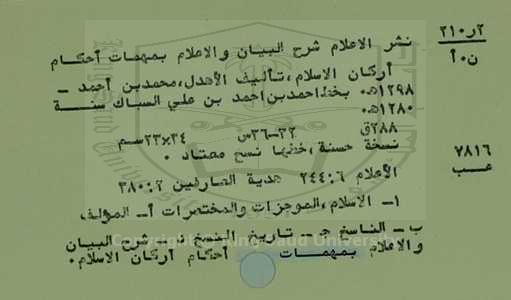 ٢ر٢١٠
ن٠أ
نشر الاعلام شرح البيان والاعلام بمهمات أحكام
أركان الاسلام ،تأليف الأهدل،محمدبن أحمد –
١٢٩٨هـ٠ بخط احمدبن احمد بن علي السباك سنــة
١٢٨٠هـ٠
٢٨٨ق ٢٢–٢٦س ٣٤×٢٣سـم
نسخة حسنة ،خطها نسخ معتاد ٠
٢٨١٦
عـب
الأعلام ٢٤٤:٦ هدية العارفين ٣٨٠:٢
١– الاسلام ،الموجزات والمختصرات أ– المؤلف
ب – الناسخ جـ – تاريخ النسخ د – شرح البيان
والاعلام بمهمـات أحكام أركان الاسلام٠